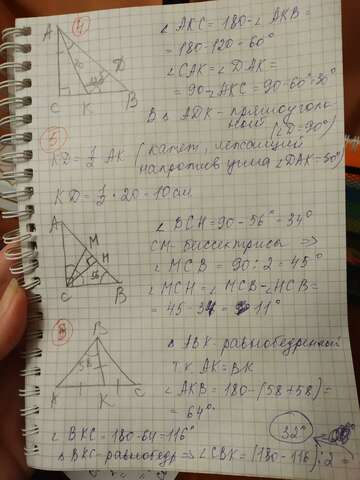 4
A
20
120°
D
C K B
∠AKC = 180 - ∠AKB =
= 180 - 120 = 60°
∠CAK = ∠DAK =
= 90 - ∠AKC = 90 - 60 = 30°
В △ ADK - прямоуголь
ный (∠D = 90°)
KD = 1/2 AK (катет, лежащий
напротив угла ∠DAK = 30°)
KD = 1/2 · 20 = 10 см
5
A
M
H
56
C B
∠BCH = 90 - 56° = 34°
CM - биссектрисы =>
∠MCB = 90 : 2 = 45°
∠MCH = ∠MCB - ∠HCB =
= 45 - 34 = 11°
3
B
58
A K C
△ ABK - равнобедренный
т.к AK = BK
∠AKB = 180 - (58 + 58) =
= 64°
∠BKC = 180 - 64 = 116°
△ BKC - равнобедр => ∠CBK = (180 - 116) : 2 =
32°